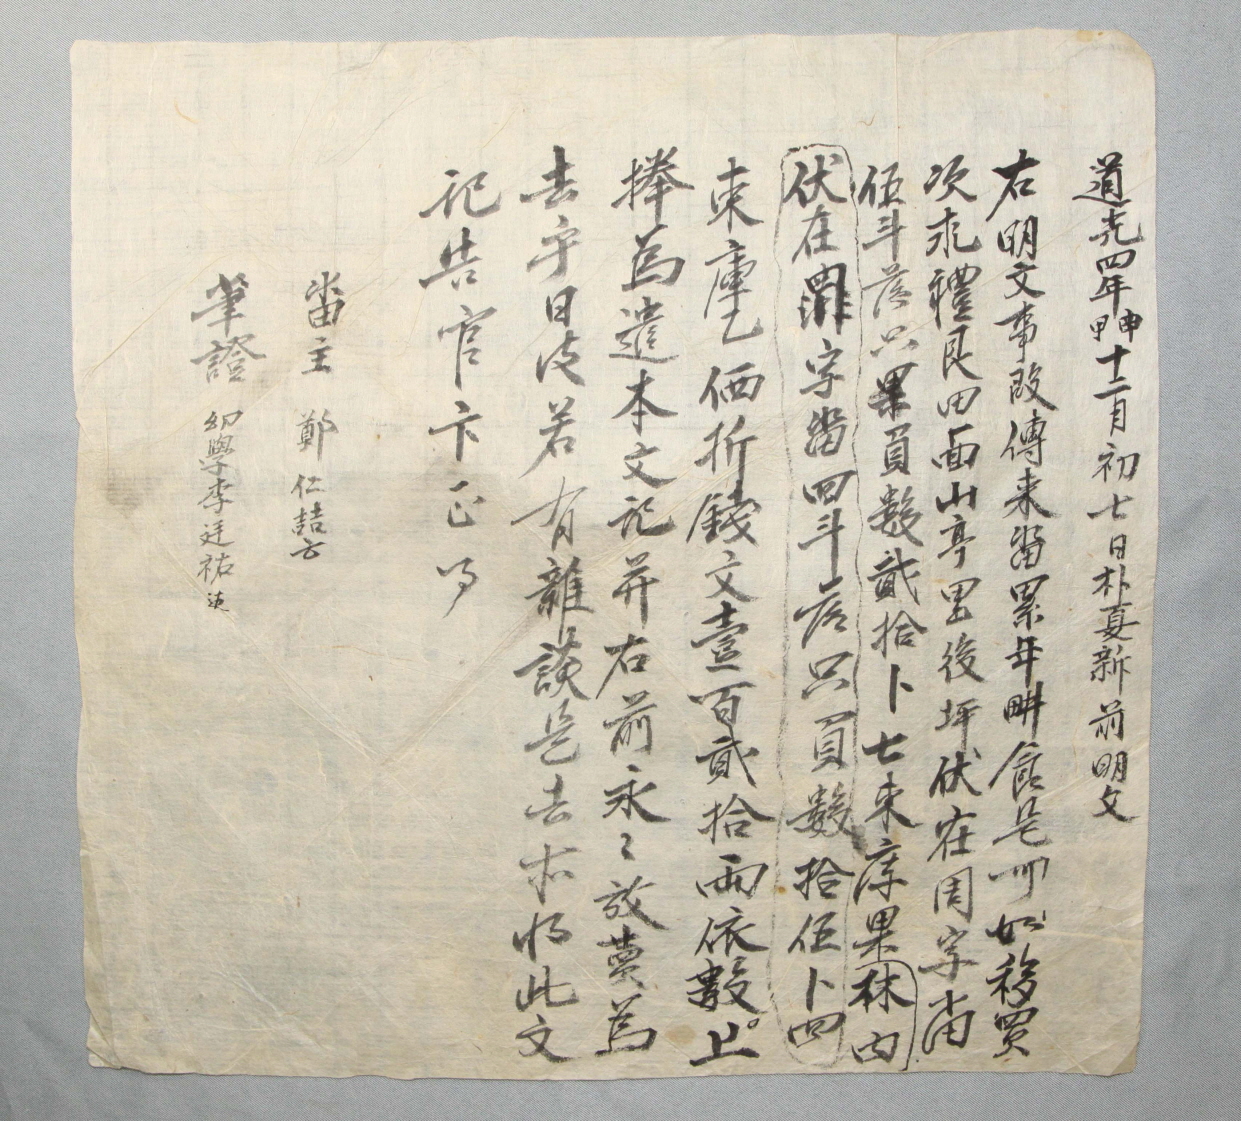 道光四年甲申十二月初七日朴夏新前明文
右明文事段傳來畓累年畊食是如移買
次求禮艮田面山亭里後坪伏在周字畓
伍斗落只果員數貳拾卜七束庫果秫內
伏在罪字畓四斗落只員數拾伍卜四
束庫乙価折錢文壹百貳拾兩依數上
捧爲遣本文記幷右前永〻放賣爲
去乎日後若有雜談是去等將此文
記告官卞正事
畓主 鄭仁喆
筆證 幼學李廷祐